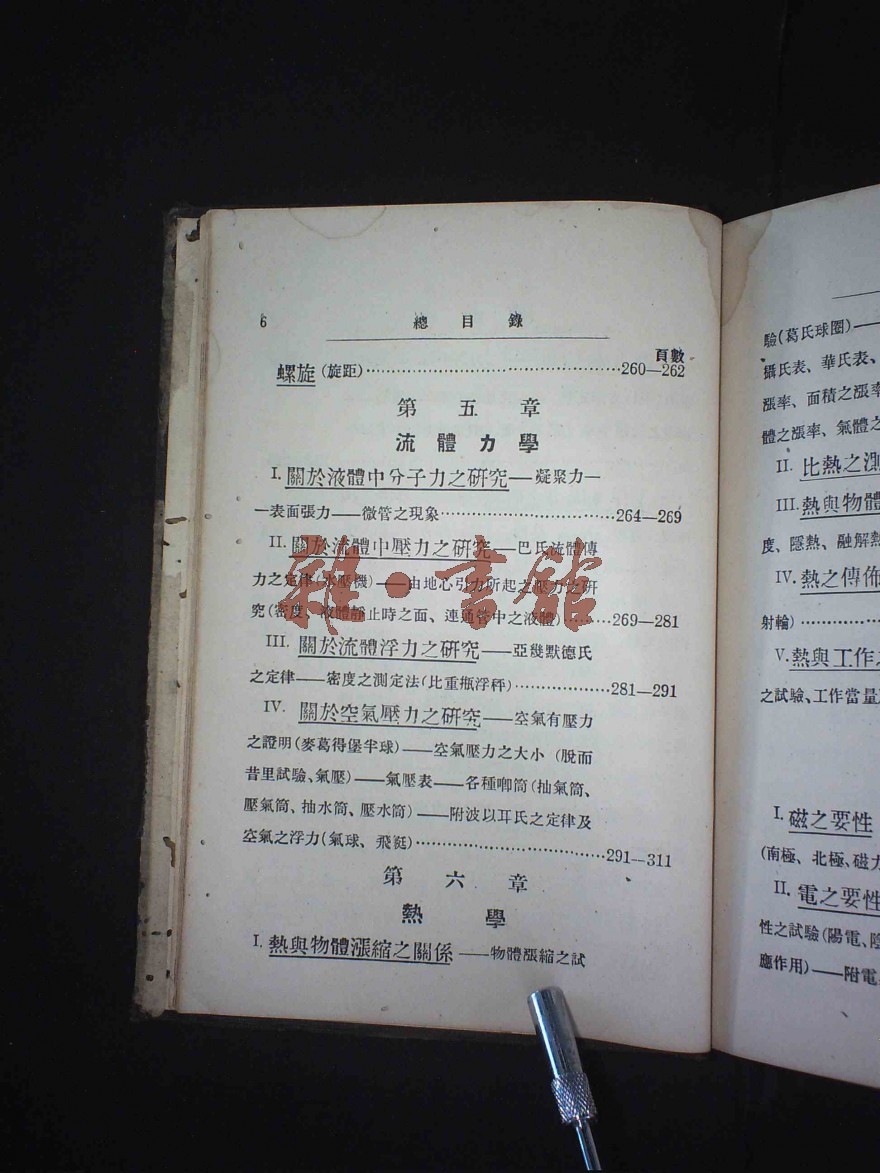 6
總目錄
頁數
螺旋(旋距)……260—262
第五章
流體力學
I.關於液體中分子力之研究——凝聚力—
—表面張力——微管之現象……264—269
II.關於流體中壓力之研究——巴氏流體傳
力之定律(水壓機)——由地心引力所起之壓力之研
究(密度、液體靜止時之面、連通管中之液體)……269—281
III.關於流體浮力之研究——亞幾默德氏
之定律——密度之測定法(比重瓶浮秤)……281—291
IV.關於空氣壓力之研究——空氣有壓力
之證明(麥葛得堡半球)——空氣壓力之大小(脫而
昔里試驗、氣壓)——氣壓表——各種唧筒(抽氣筒、
壓氣筒、抽水筒、壓水筒)——附波以耳氏之定律及
空氣之浮力(氣球、飛艇)……291—311
第六章
熱學
I.熱與物體漲縮之關係——物體漲縮之試
雜·書館
驗(葛氏球圈)—
攝氏表、華氏表、
漲率、面積之漲率
體之漲率、氣體之
II.比熱之測
III.熱與物體
度、隱熱、融解熱
IV.熱之傳佈
射輪)……
V.熱與工作之
之試驗、工作當量
I.磁之要性
(南極、北極、磁力
II.電之要性
性之試驗(陽電、陰
應作用)——附電